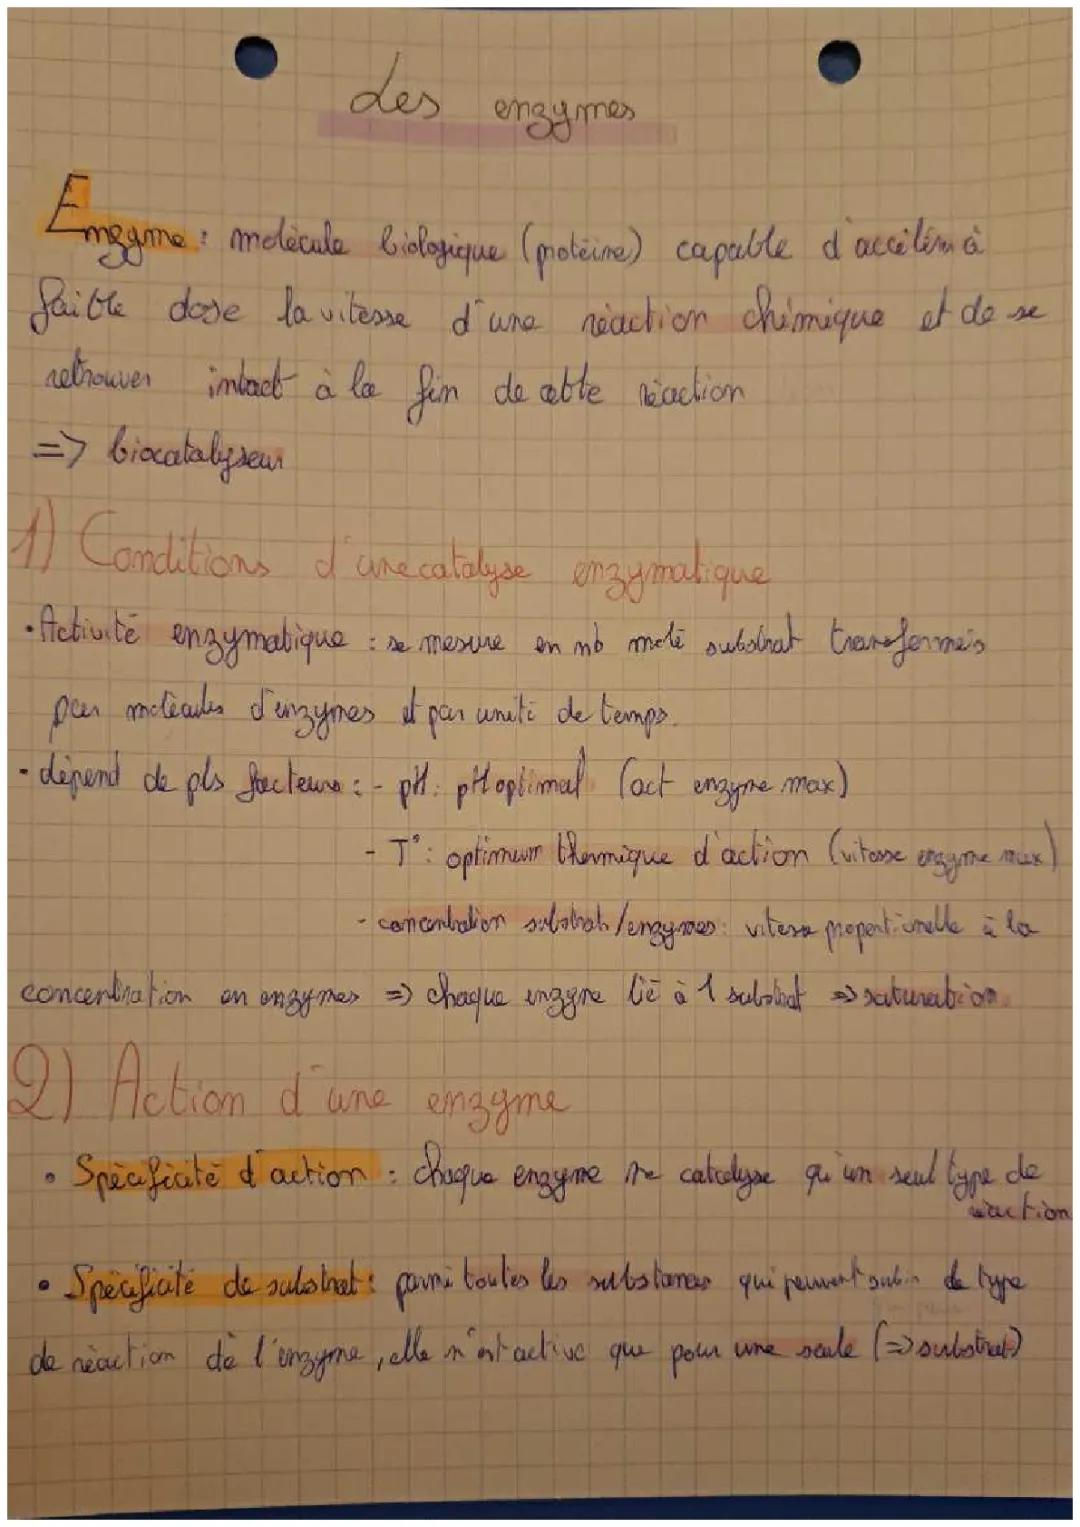 Les enzymes
Enzyme : molécule biologique (protéine) capable d'accélérer à
faible dose la vitesse d'une réaction chimique et de se
retrouver intact à la fin de cette réaction
=> biocatalyseur
1) Conditions d'une catalyse enzymatique
• Activité enzymatique : se mesure en nb molé substrat transformés
par molécules d'enzymes et par unité de temps.
- dépend de pls facteurs : - pH : pH optimal (act enzyme max)
- T° : optimum thermique d'action (vitesse enzyme max)
- concentration substrats/enzymes : vitesse proportionelle à la
concentration en enzymes => chaque enzyme lié à 1 substrat => saturation.
2) Action d'une enzyme
• Spécificité d'action : chaque enzyme ne catalyse qu'un seul type de
réaction
• Spécificité de substrat : parmi toutes les substances qui peuvent subir le type
de réaction de l'enzyme, elle n'est active que pour une seule (=> substrat)